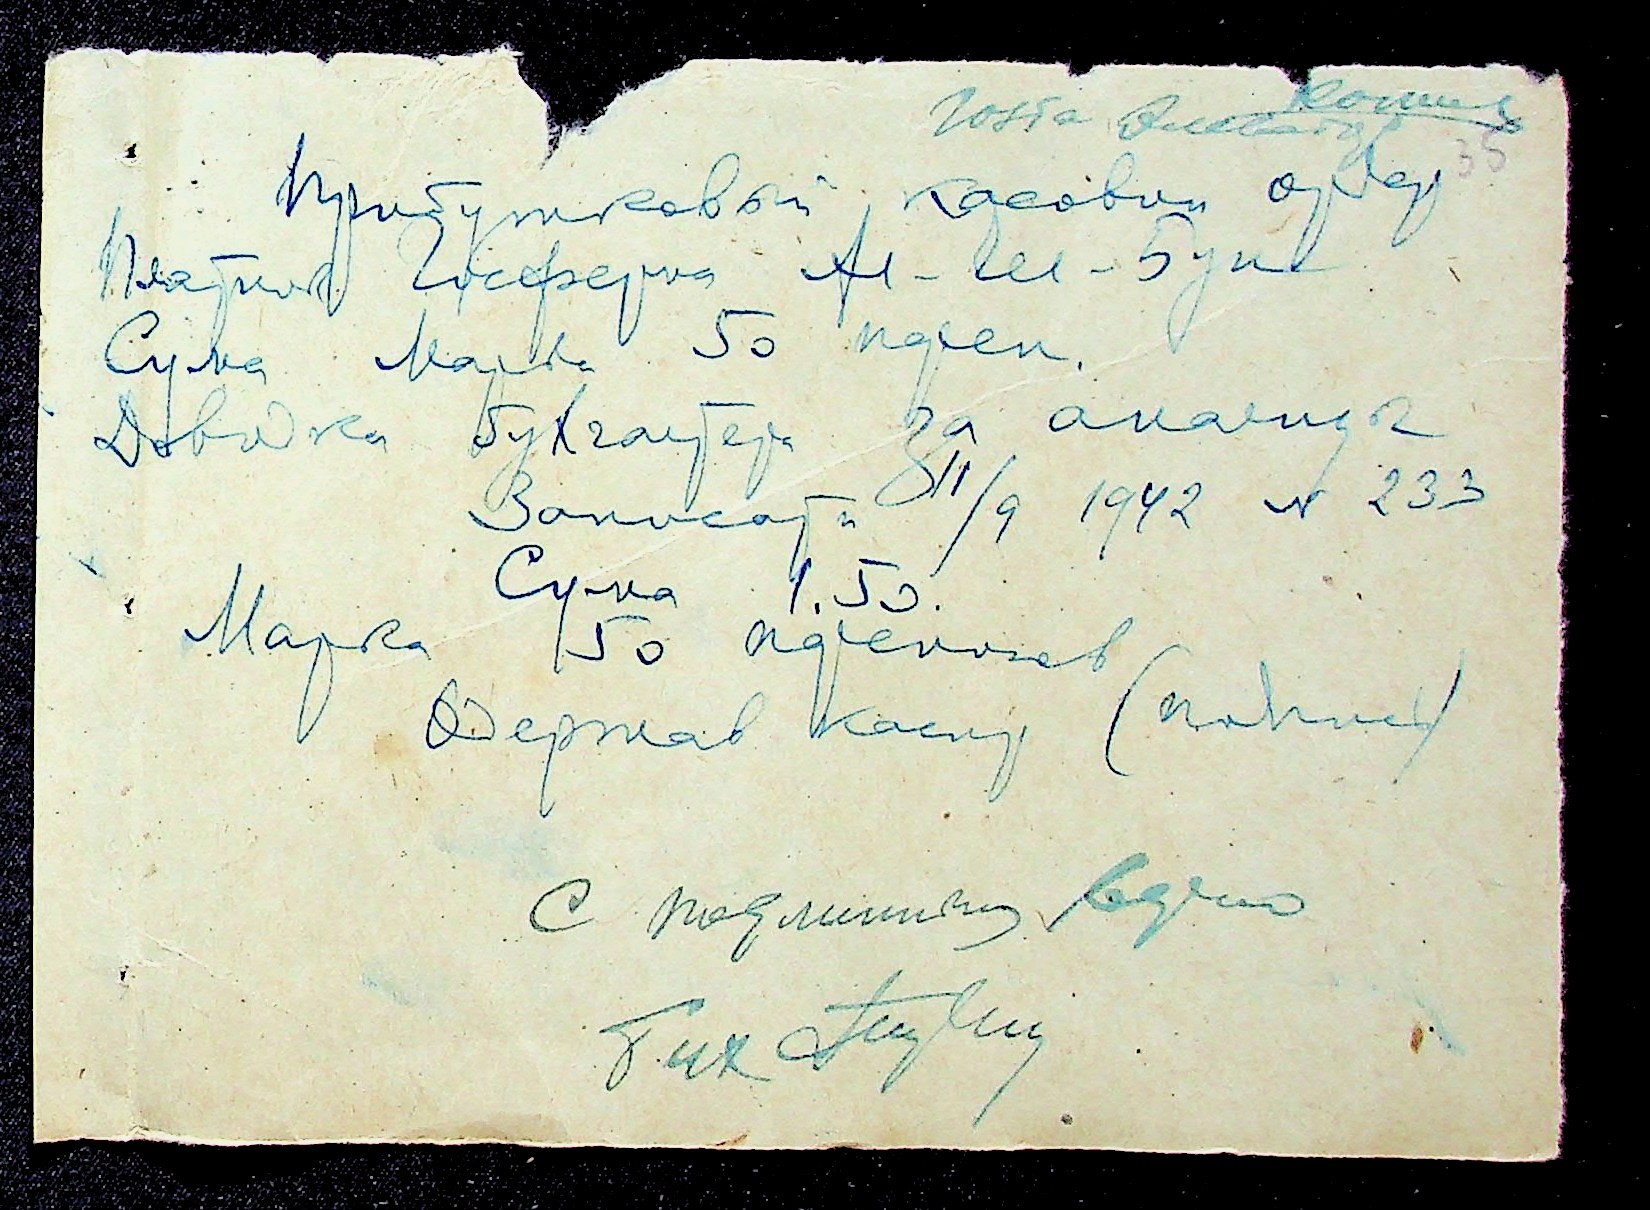 Копия
35
Прибутковый касовий ордер
Платник Госферма
Сума Марка 50 пфен.
Довидка бухгалтера за
Записати 11/9 1942 N 233
Сума 1.50.
Марка 50 пфенигов
Одержав касир (подпись)
С подлинным верно